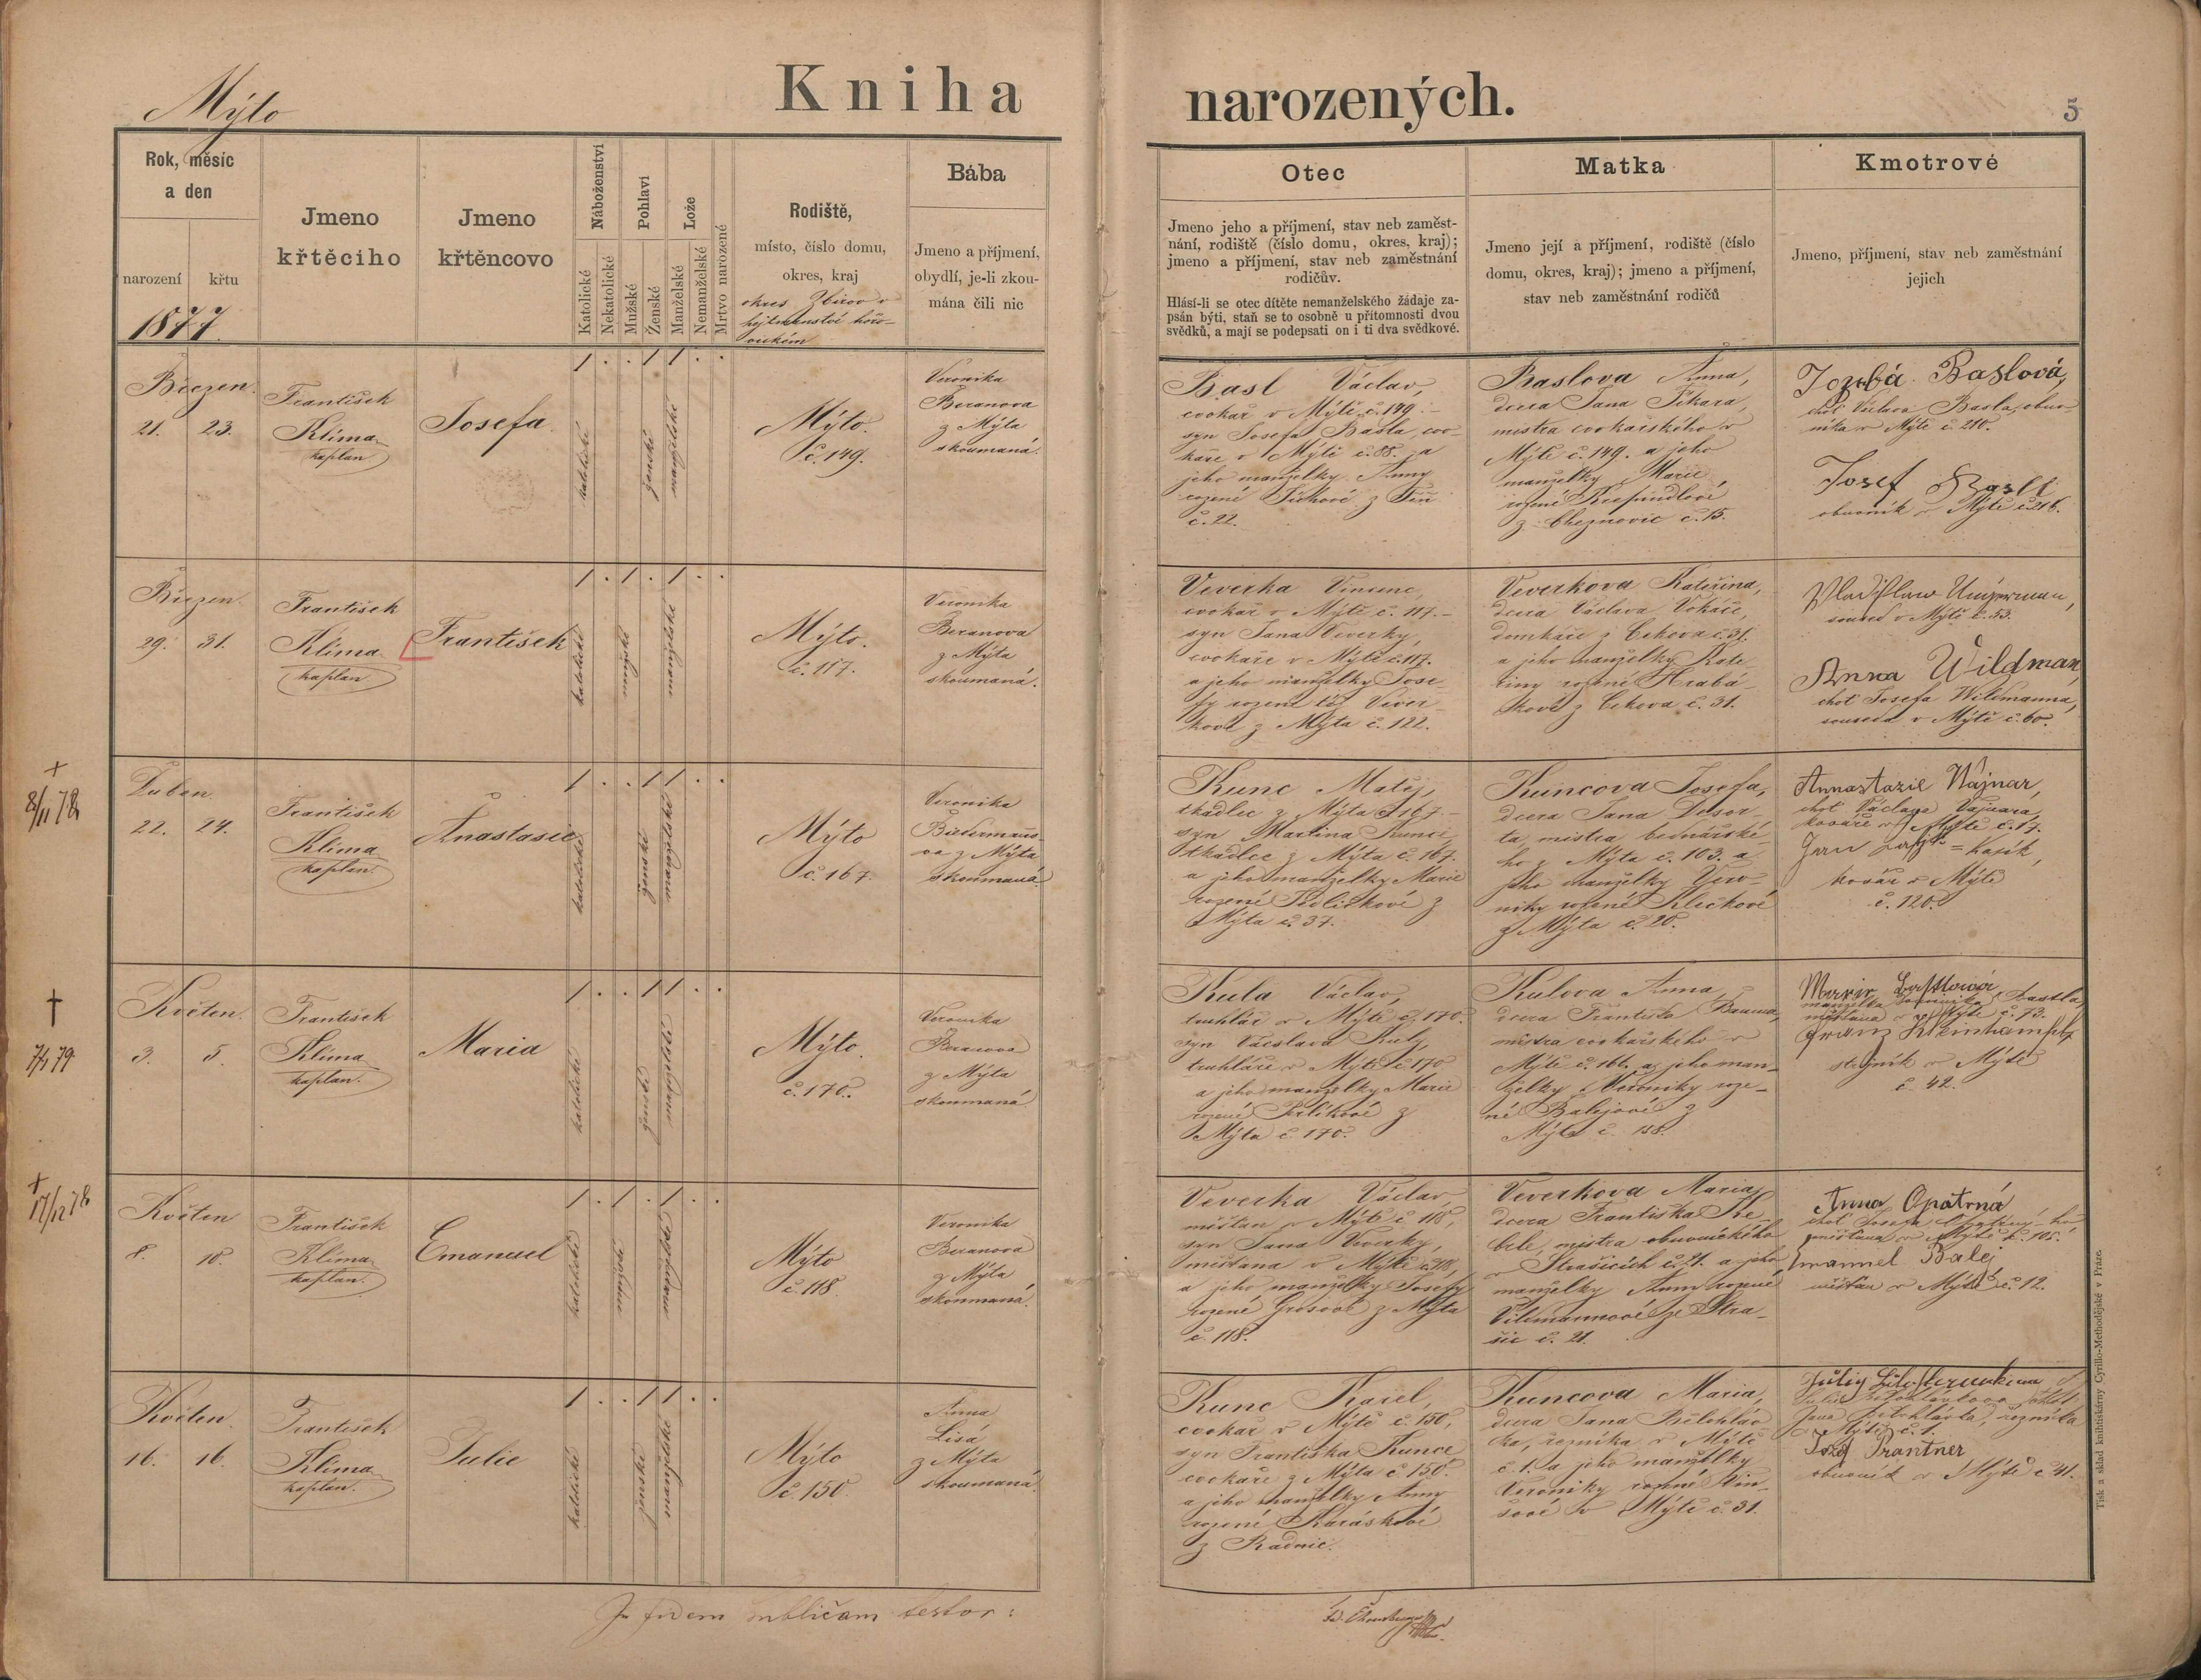 Mýto
Kniha narozených.
5
Rok, měsíc
a den
narození
křtu
1877.
Jmeno
křtěcího
Jmeno
křtěncovo
Náboženství
Katolické
Nekatolické
Pohlaví
Mužské
Ženské
Lože
Manželské
Nemanželské
Mrtvo narozené
Rodiště,
místo, číslo domu,
okres, kraj
okres Zbirov v
hejtmanství hořo-
vickém
Bába
Jmeno a příjmení,
obydlí, je-li zkou-
mána čili nic
Otec
Jmeno jeho a příjmení, stav neb zaměst-
nání, rodiště (číslo domu, okres, kraj);
jmeno a příjmení, stav neb zaměstnání
rodičův.
Hlásí-li se otec dítěte nemanželského žádaje za-
psán býti, staň se to osobně u přítomnosti dvou
svědků, a mají se podepsati on i ti dva svědkové.
Matka
Jmeno její a příjmení, rodiště (číslo
domu, okres, kraj); jmeno a příjmení,
stav neb zaměstnání rodičů
Kmotrové
Jmeno, příjmení, stav neb zaměstnání
jejich
Březen.
21. 23.
František
Klíma
kaplan
Josefa
1 . . 1 1 . .
katolické
ženské
manželské
Mýto.
č. 149.
Veronika
Beranova
z Mýta
skoumaná.
Basl Václav,
cvokař v Mýtě č. 149. –
syn Josefa Basla, cvo-
kaře v Mýtě č. 88. a
jeho manželky Anny
rozené
č. 22.
Baslova Anna,
dcera Jana
mistra cvokařského v
Mýtě č. 149. a jeho
manželky Marie
rozené
z Cheznovic č. 15.
Baslová,
choť Václava Basla, obuv-
níka v Mýtě č. 210.
Josef Basl
obuvník v Mýtě č. 216.
Březen.
29. 31.
František
Klíma
kaplan
František
1 . 1 . 1 . .
katolické
mužské
manželské
Mýto.
č. 117.
Veronika
Beranova
z Mýta
skoumaná.
Veverka Vincenc,
cvokař v Mýtě č. 117. –
syn Jana Veverky,
cvokaře v Mýtě č. 117.
a jeho manželky Jose-
fy rozené též Vever-
kové z Mýta č. 122.
Veverkova Kateřina,
dcera Václava Vokáče,
domkáře z Cekova č. 31.
a jeho manželky Kate-
řiny rozené Hrabá-
kové z Cekova č. 31.
soused v Mýtě č. 53.
Anna Wildman,
choť Josefa Wildmanna,
souseda v Mýtě č. 60.
+
8/11 78
Duben
22. 24.
František
Klíma
kaplan.
Anastasie
1 . . 1 1 . .
katolické
ženské
manželské
Mýto
č. 167.
Veronika
Biedermano-
va z Mýta
skoumaná
Kunc Matěj,
tkadlec z Mýta č. 167. –
syn Martina Kunce,
tkadlce z Mýta č. 167.
a jeho manželky Marie
rozené Jedličkové z
Mýta č. 37.
Kuncova Josefa,
dcera Jana Desor-
ta, mistra bednářské-
ho z Mýta č. 103. a
jeho manželky Vero-
niky rozené Klečkové
z Mýta č. 20.
Annastazie Wajnar,
choť Václava Vajnara,
kováře v Mýtě č. 17.
Jan = Kasík,
kovář v Mýtě
č. 120.
†
79
Květen.
3. 5.
František
Klíma
kaplan.
Maria
1 . . 1 1 . .
katolické
ženské
manželské
Mýto.
č. 170.
Veronika
Beranova
z Mýta
skoumaná
Kula Václav,
truhlář v Mýtě č. 170.
syn Václava Kuly,
truhláře v Mýtě č. 170
a jeho manželky Marie
rozené
Mýta č. 170.
Kulova Anna,
dcera Františka Bauma,
mistra cvokařského v
Mýtě č. 166. a jeho man-
želky Veroniky roze-
né Balejové z
Mýta č. 158.
manželka Dominika Bastla
měšťana v Mýtě č. 73.
Franz
v Mýtě
č. 42.
+
17/12 78
Květen
8. 10.
František
Klíma
kaplan.
Emanuel
1 . 1 . 1 . .
katolické
mužské
manželské
Mýto
č. 118.
Veronika
Beranova
z Mýta
skoumaná.
Veverka Václav,
měšťan v Mýtě č. 118,
syn Jana Veverky,
měšťana v Mýtě č. 118,
a jeho manželky Josefy
rozené Grosové z Mýta
č. 118.
Veverkova Maria,
dcera Františka Ke-
brle, mistra obuvnického
v Strašicích č. 21. a jeho
manželky Anny rozené
Vildmannové ze Stra-
šic č. 21.
Anna Opatrná
choť Josefa Opatrný-ho
měšťana v Mýtě č. 105.
Emannel Balej
měšťan v Mýtě č. 12.
Květen.
16. 16.
František
Klíma
kaplan.
Julie
1 . . 1 1 . .
katolické
ženské
manželské
Mýto
č. 150.
Anna
Lisá
z Mýta
skoumaná.
Kunc Karel,
cvokař v Mýtě č. 150,
syn Františka Kunce
cvokaře z Mýta č. 150.
a jeho manželky Anny
rozené Karáskové
z Radnic.
Kuncova Maria,
dcera Jana Bělohláv-
ka, řezníka v Mýtě
č. 1. a jeho manželky
Veroniky rozené Vin-
šové v Mýtě č. 31.
Jana Bělohlávka, řezníka
v Mýtě č. 1.
Jozef Prantner
obuvník v Mýtě č. 41.
In fidem publicam testor:
Tisk a sklad knihtiskárny Cyrillo-Methodějské v Praze.